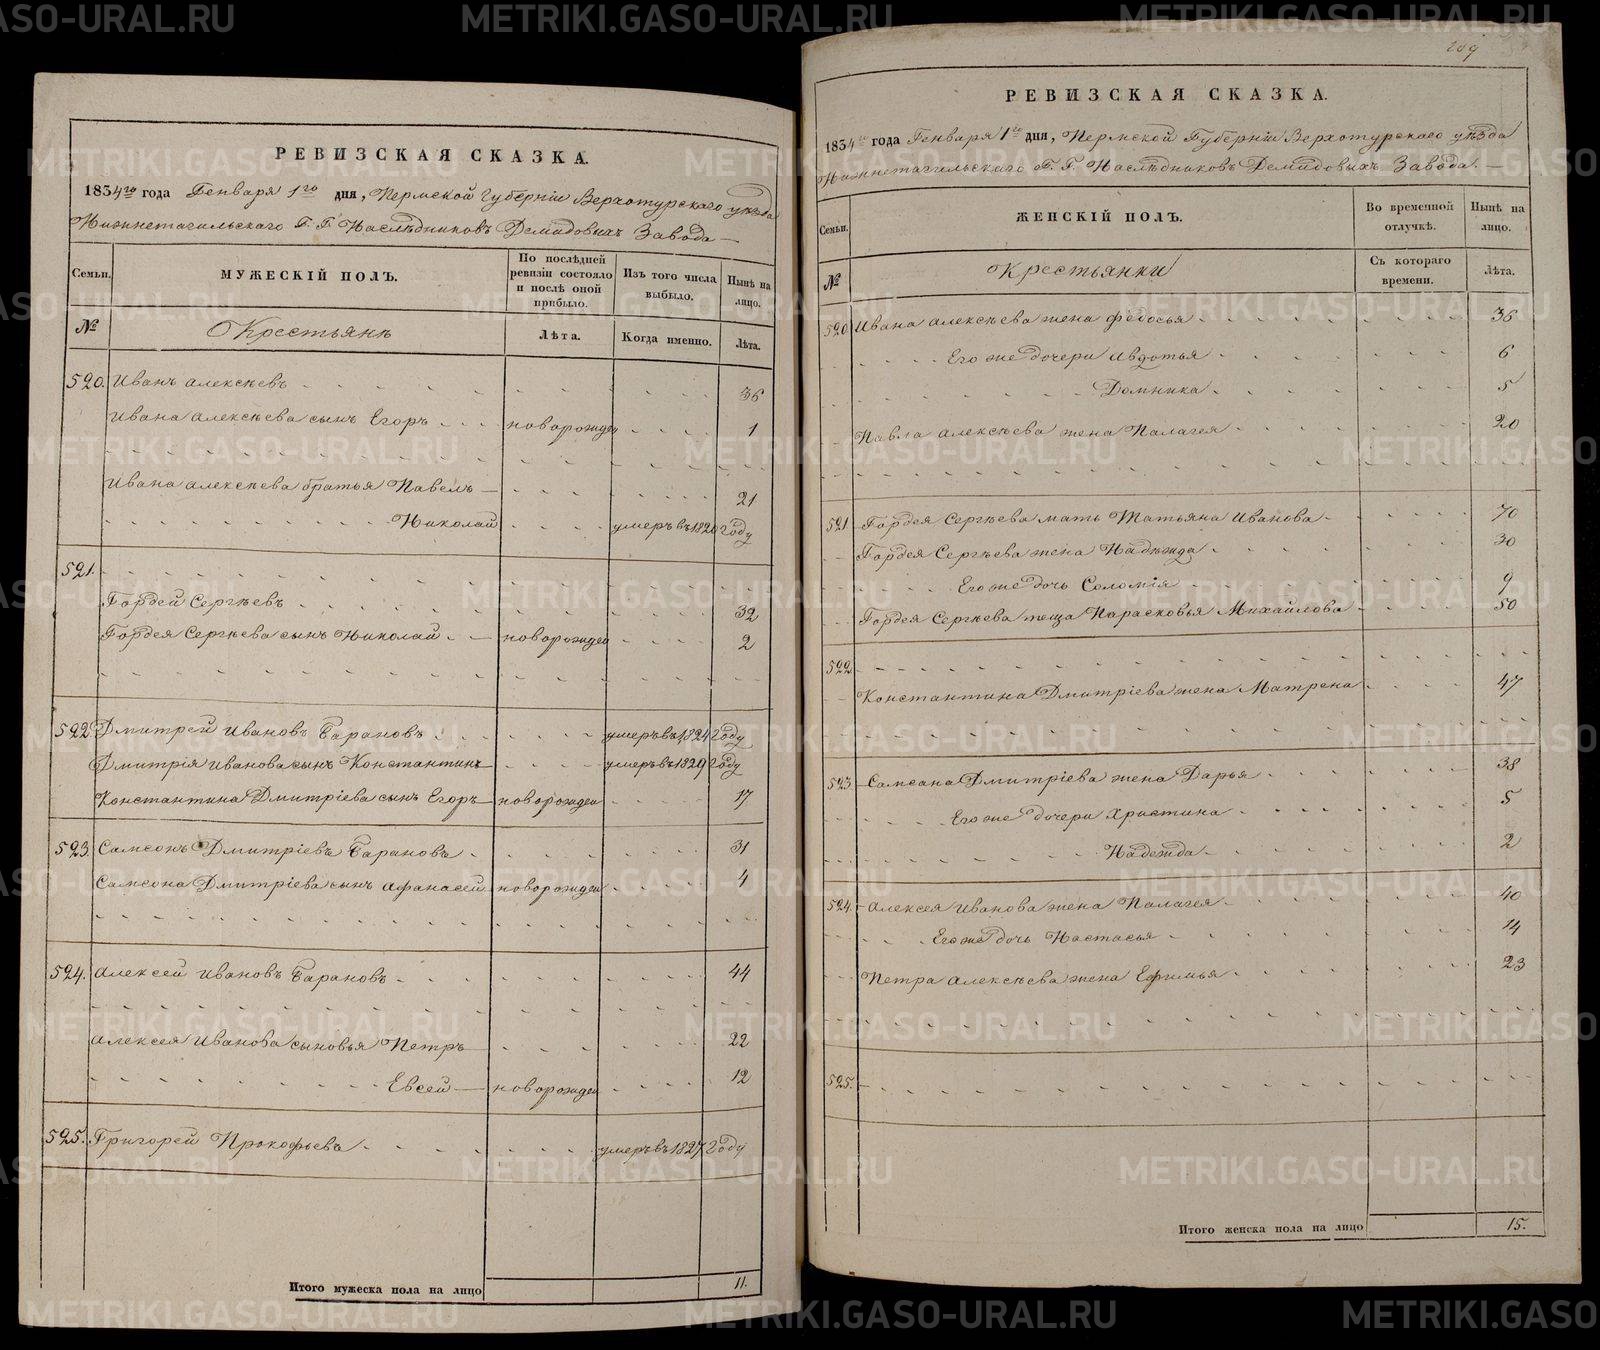 РЕВИЗСКАЯ СКАЗКА.
1834го года Генваря 1го дня, Пермской Губерніи Верхотурскаго уѣзда
Нижнетагильскаго Г. Г. Наслѣдниковъ Демидовыхъ Завода
Семьи. МУЖЕСКІЙ ПОЛЪ. По послѣдней ревизіи состояло и послѣ оной прибыло. Изъ того числа выбыло. Нынѣ на лицо.
№ Крестьянъ Лѣта. Когда именно. Лѣта.
520. Иванъ Алексѣевъ 36
Ивана Алексѣева сынъ Егоръ новорожден 1
Ивана Алексѣева братья Павелъ 21
Николай умеръ въ 1820 году
521.
Гордей Сергѣевъ 32
Гордея Сергѣева сынъ Николай новорожден 2
522 Дмитрей Ивановъ Барановъ умеръ въ 1824 году
Дмитрія Иванова сынъ Константинъ умеръ въ 1829 году
Константина Дмитріева сынъ Егоръ новорожден 17
523. Самсонъ Дмитріевъ Барановъ 31
Самсона Дмитріева сынъ Афанасей новорожден 4
524. Алексей Ивановъ Барановъ 44
Алексея Иванова сыновья Петръ 22
Евсей новорожден 12
525. Григорей Прокофьевъ умеръ въ 1827 году
Итого мужеска пола на лицо 11.
209
РЕВИЗСКАЯ СКАЗКА.
1834го года Генваря 1го дня, Пермской Губерніи Верхотурскаго уѣзда
Нижнетагильскаго Г. Г. Наслѣдниковъ Демидовыхъ Завода.
Семьи. ЖЕНСКІЙ ПОЛЪ. Во временной отлучкѣ. Нынѣ на лицо.
№ Крестьянки Съ котораго времени. Лѣта.
520 Ивана Алексѣева жена Федосья 36
Его же дочери Авдотья 6
Домника 5
Павла Алексѣева жена Палагея 20
521 Гордея Сергѣева мать Татьяна Иванова 70
Гордея Сергѣева жена Надѣжда 30
Его же дочь Соломія 9
Гордея Сергѣева теща Парасковья Михайлова 50
522
Константина Дмитріева жена Матрена 47
523 Самсана Дмитріева жена Дарья 38
Его же дочери Христина 5
Надежда 2
524. Алексея Иванова жена Палагея 40
Его же дочь Настасья 14
Петра Алексѣева жена Ефимья 23
525.
Итого женска пола на лицо 15.
METRIKI.GASO-URAL.RU